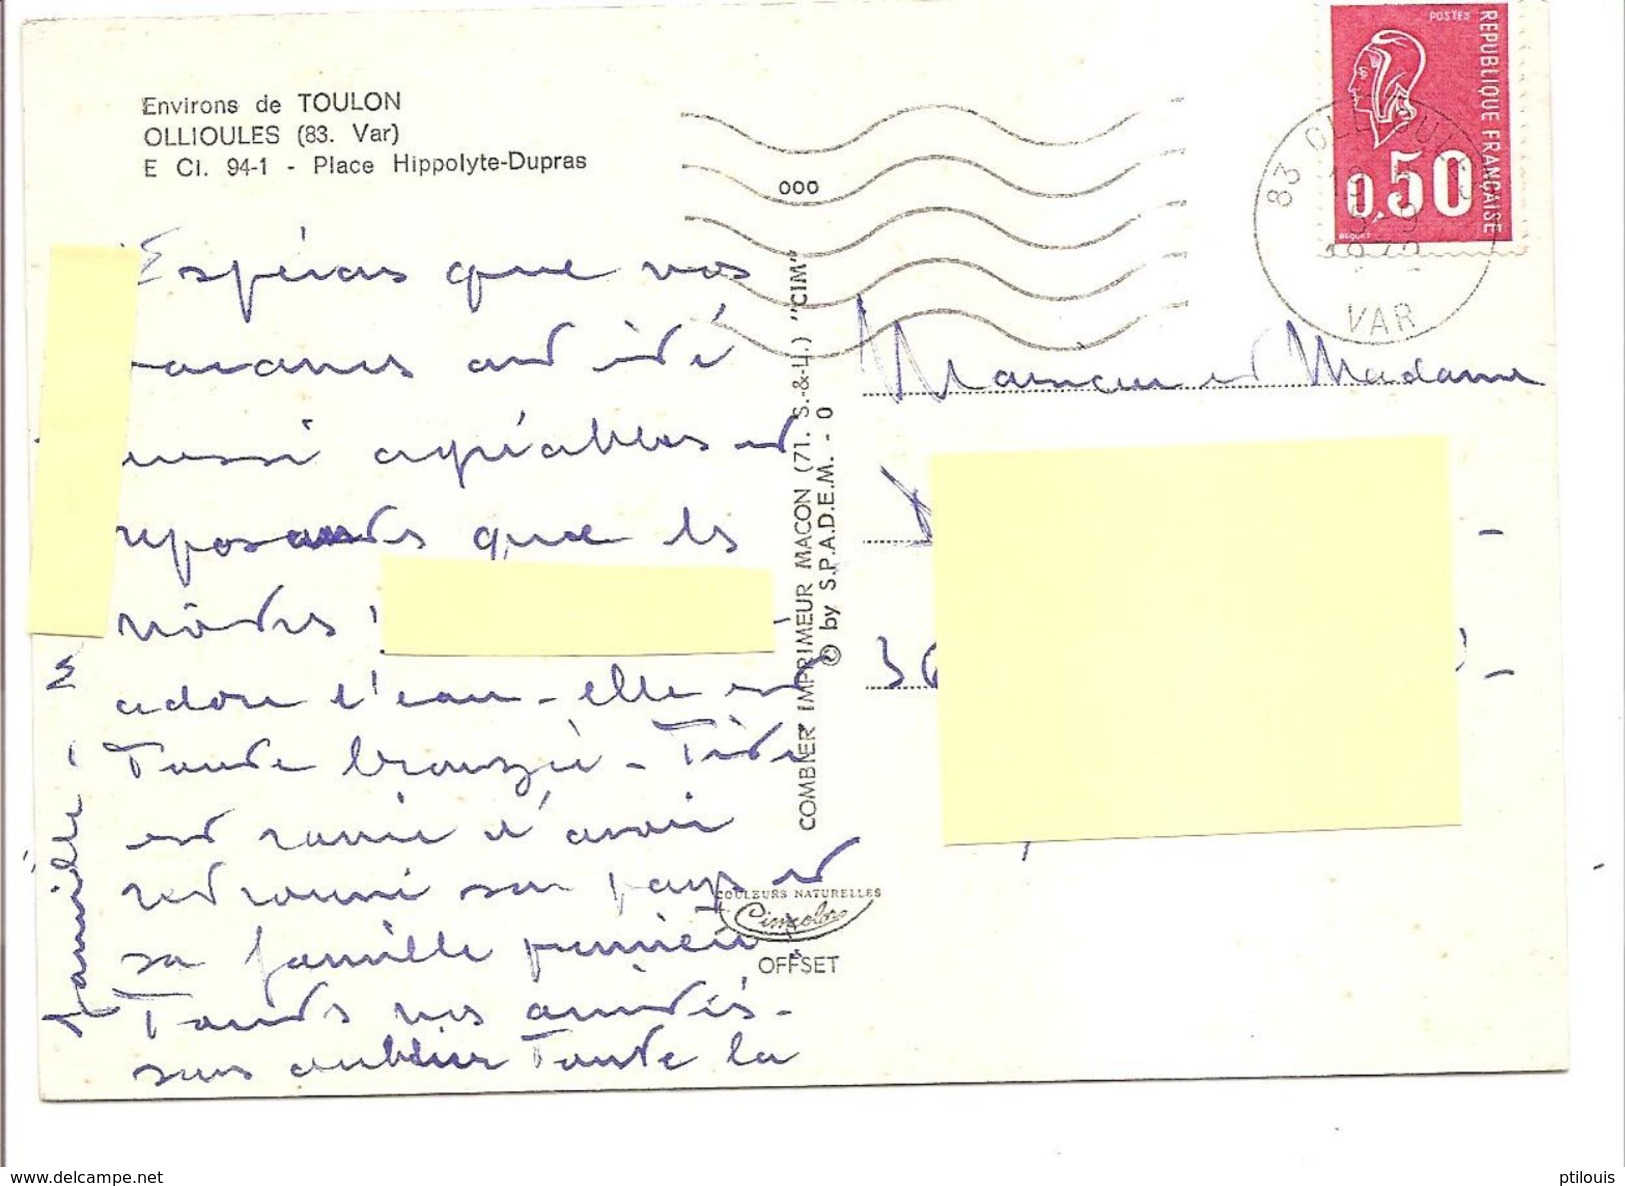 Environs de TOULON
OLLIOULES (83. Var)
E CI. 94-1 - Place Hippolyte-Dupras
ooo
POSTES
REPUBLIQUE FRANÇAISE
0,50
BEQUET
83 OLLIOULES
VAR
Espérons que vos
vacances ont été
aussi agréables et
reposantes que les
nôtres !
adore l'eau - elle est
Toute bronzée -
est ravie d'avoir
retrouvé son pays et
sa famille
Toutes nos amitiés -
sans oublier Toute la
famille -
Monsieur et Madame
36
COMBIER IMPRIMEUR MACON (71. S.-&-L.) "CIM"
© by S.P.A.D.E.M. - 0
COULEURS NATURELLES
Cimcolor
OFFSET
www.delcampe.net
ptilouis